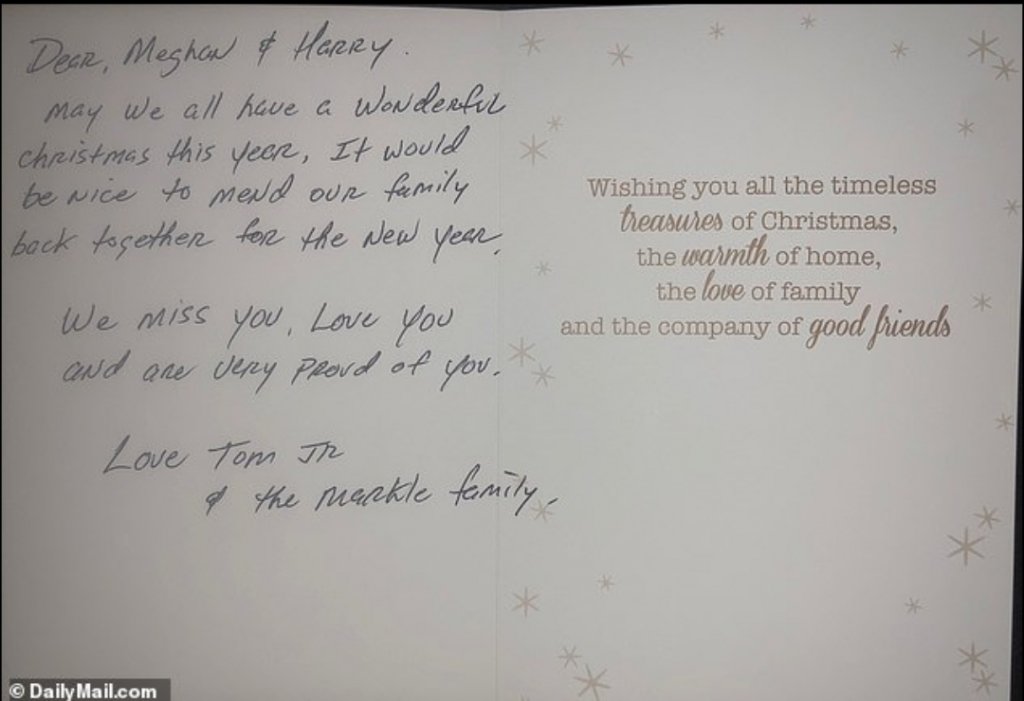 Dear, Meghan & Harry.
May we all have a wonderful
christmas this year, It would
be nice to mend our family
back together for the new year.
We miss you, Love you
and are very proud of you.
Love Tom Jr
& the Markle family.
Wishing you all the timeless
treasures of Christmas,
the warmth of home,
the love of family
and the company of good friends
© DailyMail.com